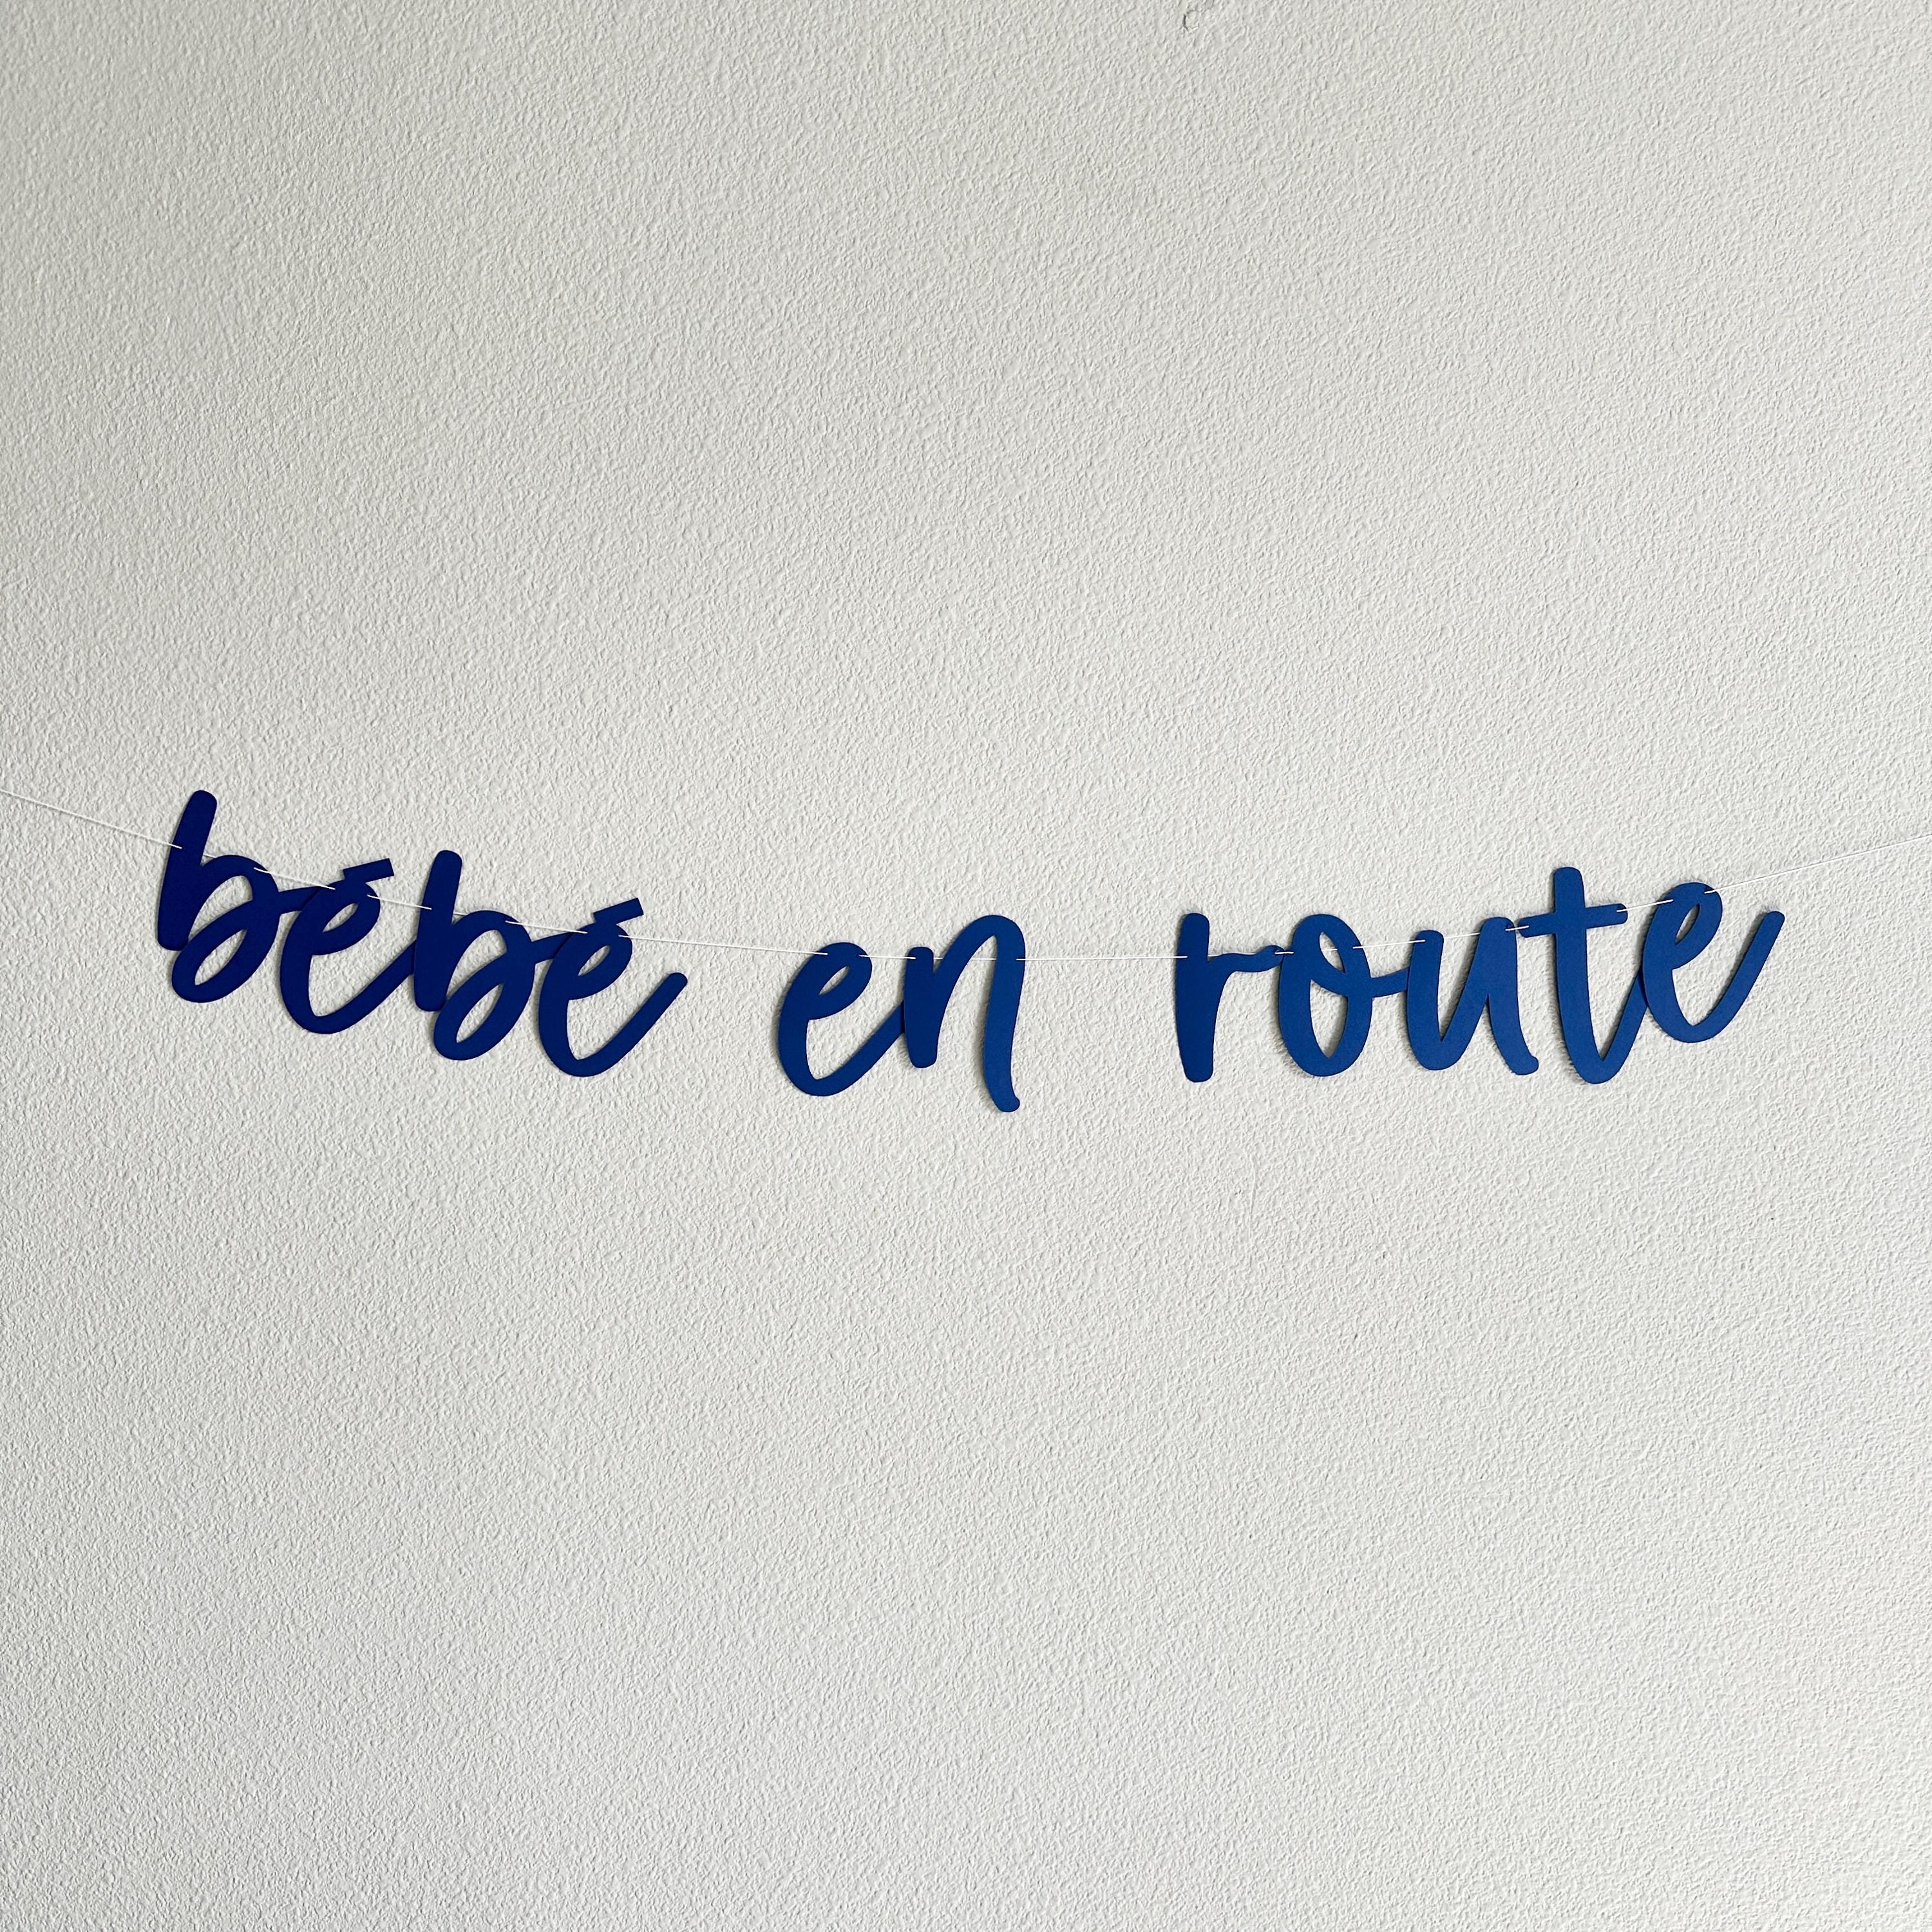 bébé en route